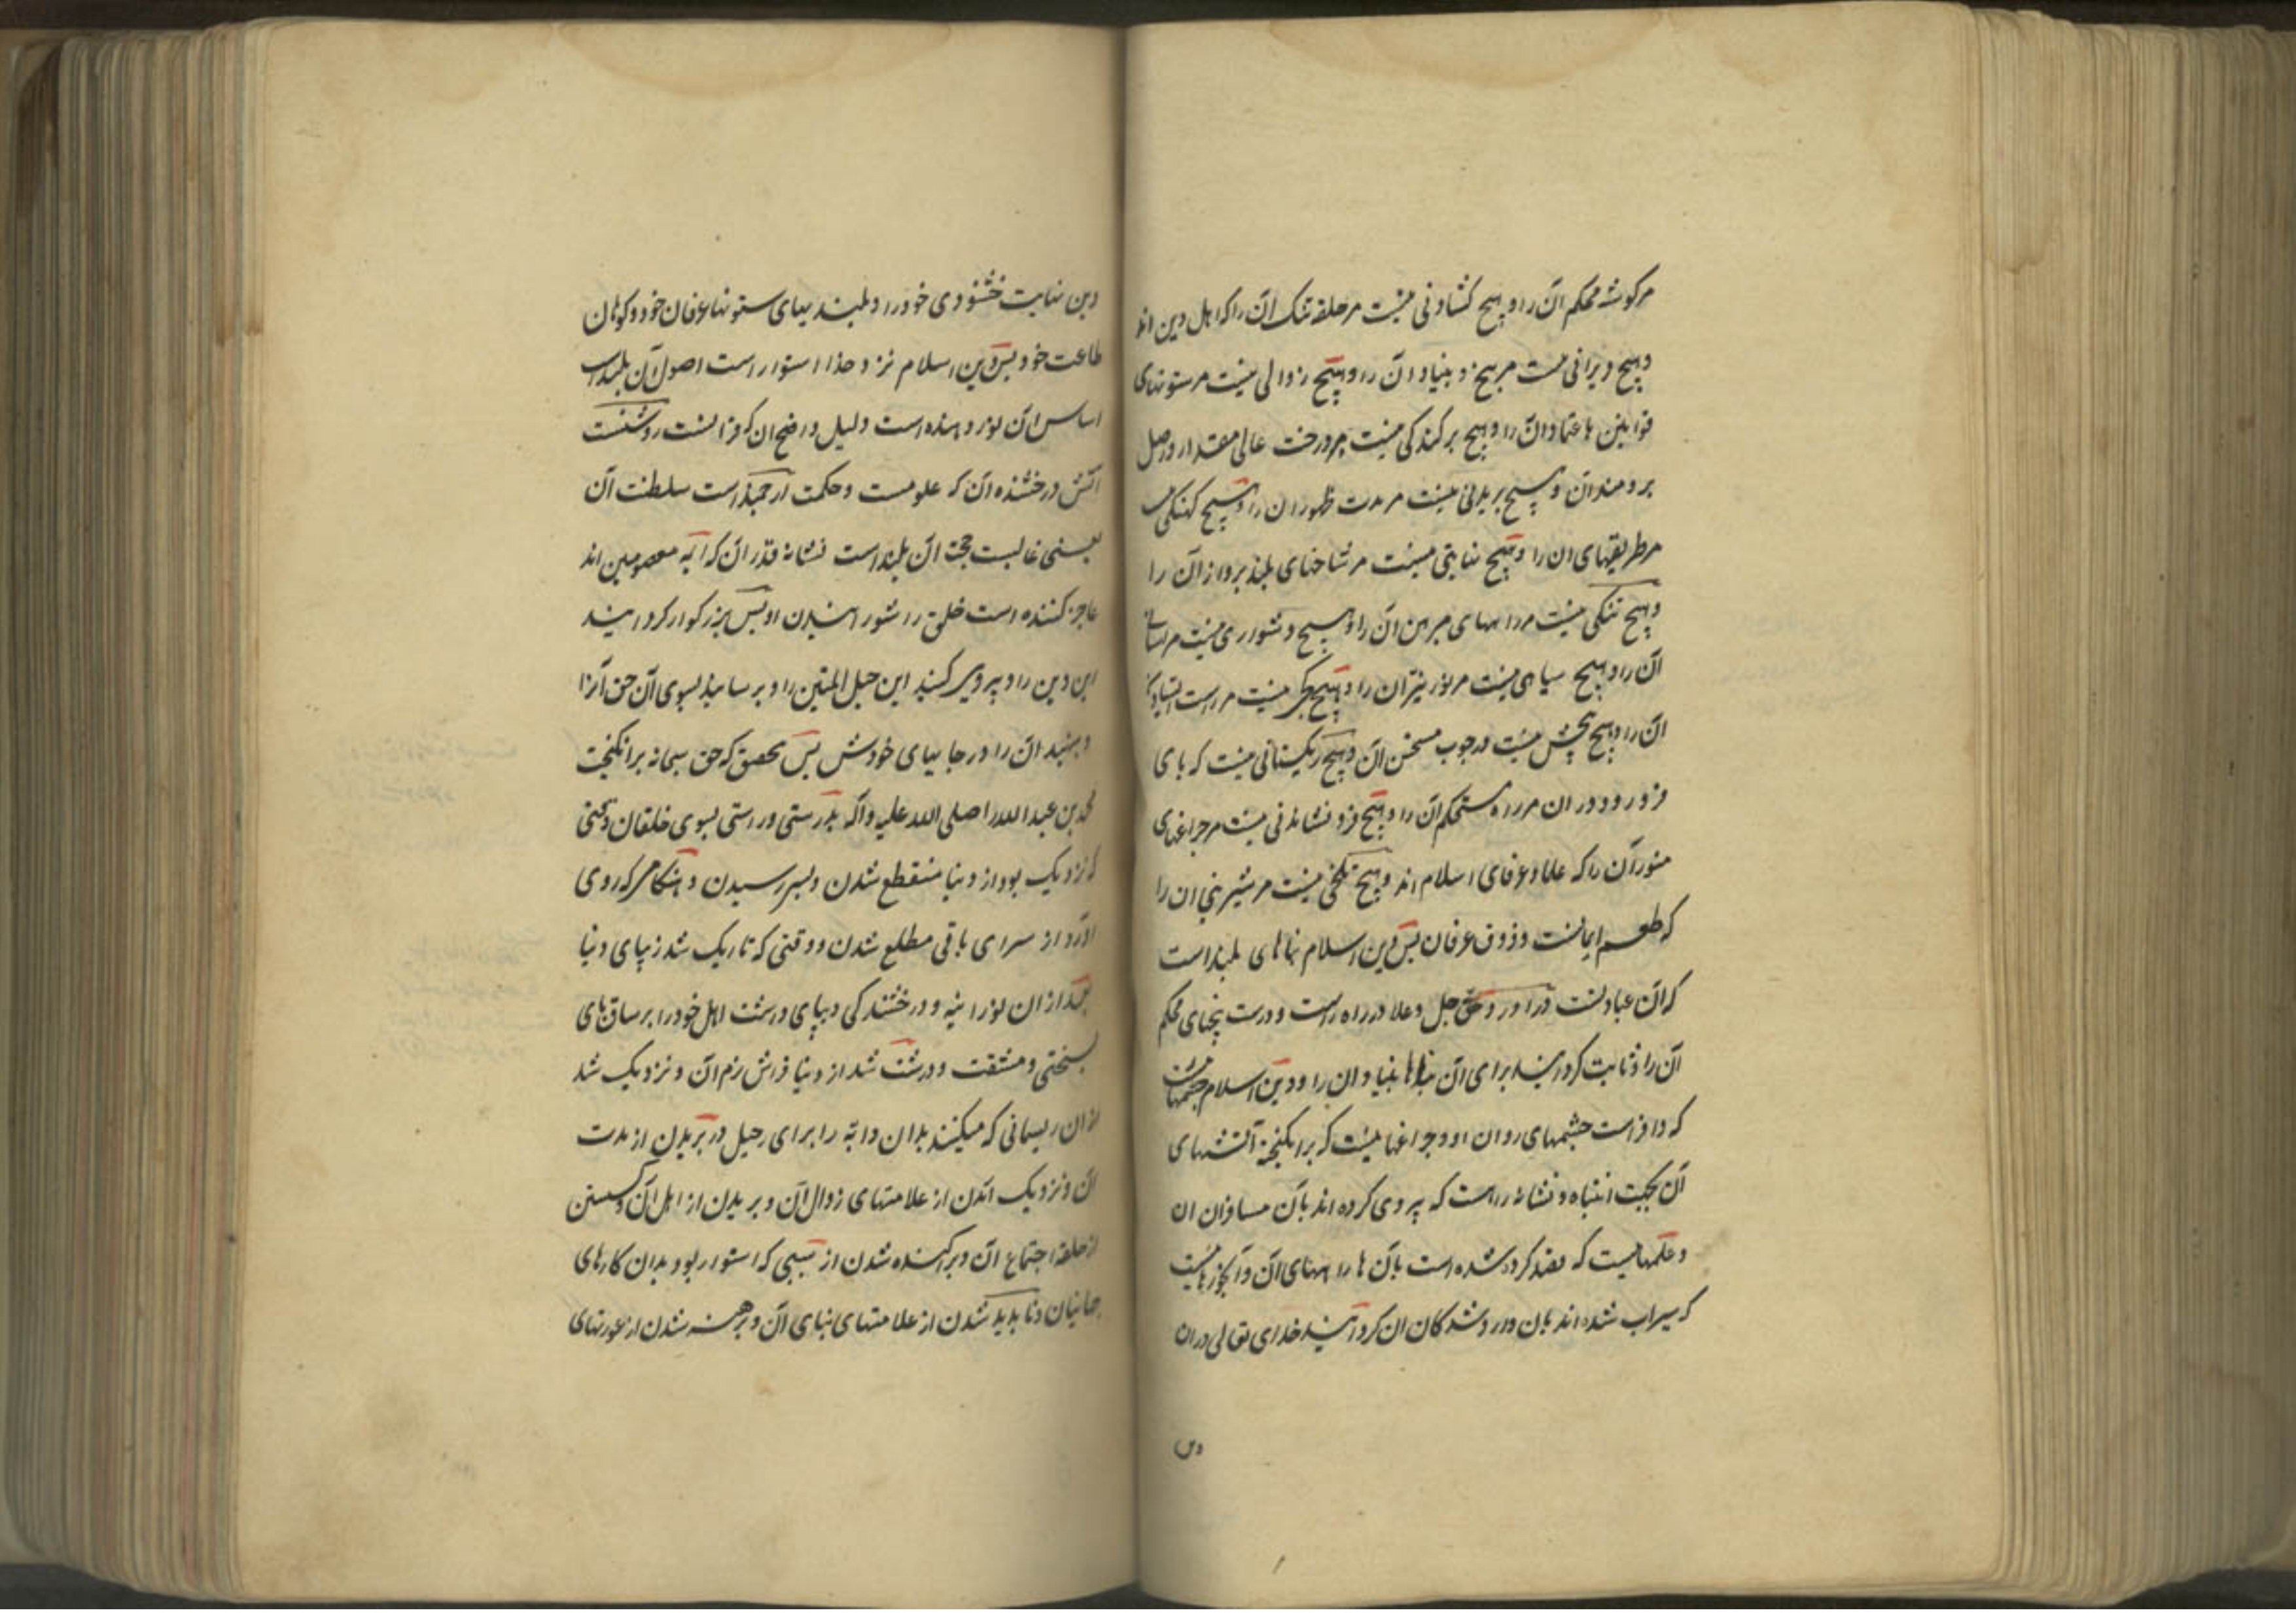 مر گوشه محکم آن را و هیچ کشادنی نیست مر حلقه تنک آن را که اهل دین اند
و هیچ ویرانی نیست مر بیخ و بنیاد آن را و هیچ زوالی نیست مر ستونهای
قوانین با عتماد آن را و هیچ برکندکی نیست مر درخت عالی مقدار و اصل
برومند آن و هیچ بریدنی نیست مر مدت ظهور ان را و هیچ کهنکی نیست
مر طریقهای ان را و هیچ نهایتی نیست مر شاخهای بلند پرواز آن را
و هیچ تنکی نیست مر راههای مبرهن آن را و هیچ دشواری نیست مر
آن را و هیچ سیاهی نیست مر نور نیّر ان را و هیچ کجی نیست مر راست
ان را و هیچ پیچش نیست در چوب مستحسن آن و هیچ ریکستانی نیست که پای
فرو رود در ان مر راه مستحکم آن را و هیچ فرو نشاندنی نیست مر چراغهای
منور آن را که علما و عرفای اسلام اند و هیچ تلخی نیست مر شیرینی ان را
که طعم ایمانست و ذوق عرفان پس دین اسلام بناهای بلند است
که آن عبادتست در اورد حق جل و علا در راه راست و درست بیخهای محکم
آن را و ثابت کردانید برای آن بناها بنیاد ان را و دین اسلام چشمهاست
که وافر است چشمهای روان او و چراغها نیست که برانکیخته آتشهای
آن بجهت انتباه و نشانه راهست که پیروی کرده اند بآن مسافران ان
و علمهاییست که قصد کرده شده است بآن ها راههای آن و آبخورهاییست
که سیراب شده اند بان وارد شدکان ان کردانید خدای تعالی در ان
دین
دین نهایت خشنودی خود را و بلندیهای ستونها عرفان خود و کوهان
طاعت خود پس دین اسلام نزد خدا استوار است اصول آن بلند است
اساس ان نور دهنده است دلیل واضح ان که قرانست روشنست
آتش درخشنده آن که علومست و حکمت ارجمند است سلطنت آن
یعنی غالبست حجت آن بلند است نشانه قدر آن که ائمه معصومین اند
عاجز کننده است خلق را شورانیدن او پس بزرکوار کردانید
این دین را و پیروی کنید این حبل المتین را و برسانید بسوی آن حق آنرا
و بنهید ان را در جاییهای خودش پس بتحقیق که حق سبحانه برانکیخت
محمد بن عبد الله را صلی الله علیه و آله بدرستی و راستی بسوی خلقان وقتی
که نزدیک بود از دنیا منقطع شدن و بسر رسیدن و هنکامی که روی
اورد از سرای باقی مطلع شدن و وقتی که تاریک شد زیبای دنیا
بعد از ان نورانیه و درخشندکی و بپای داشت اهل خود را بر ساقهای
سختی و مشقت و درشت شد از دنیا فراش نرم آن و نزدیک شد
از ان ریسمانی که میکنند بدان دابّه را برای رحیل در بریدن از مدت
آن و نزدیک آمدن از علامتهای زوال آن و بریدن از اهل آن و کسستن
از حلقه اجتماع آن و پراکنده شدن از سببی که استوار بود بدان کارهای
جهانیان و ناپدید شدن از علامتهای بنای آن و برهنه شدن از عورتهای